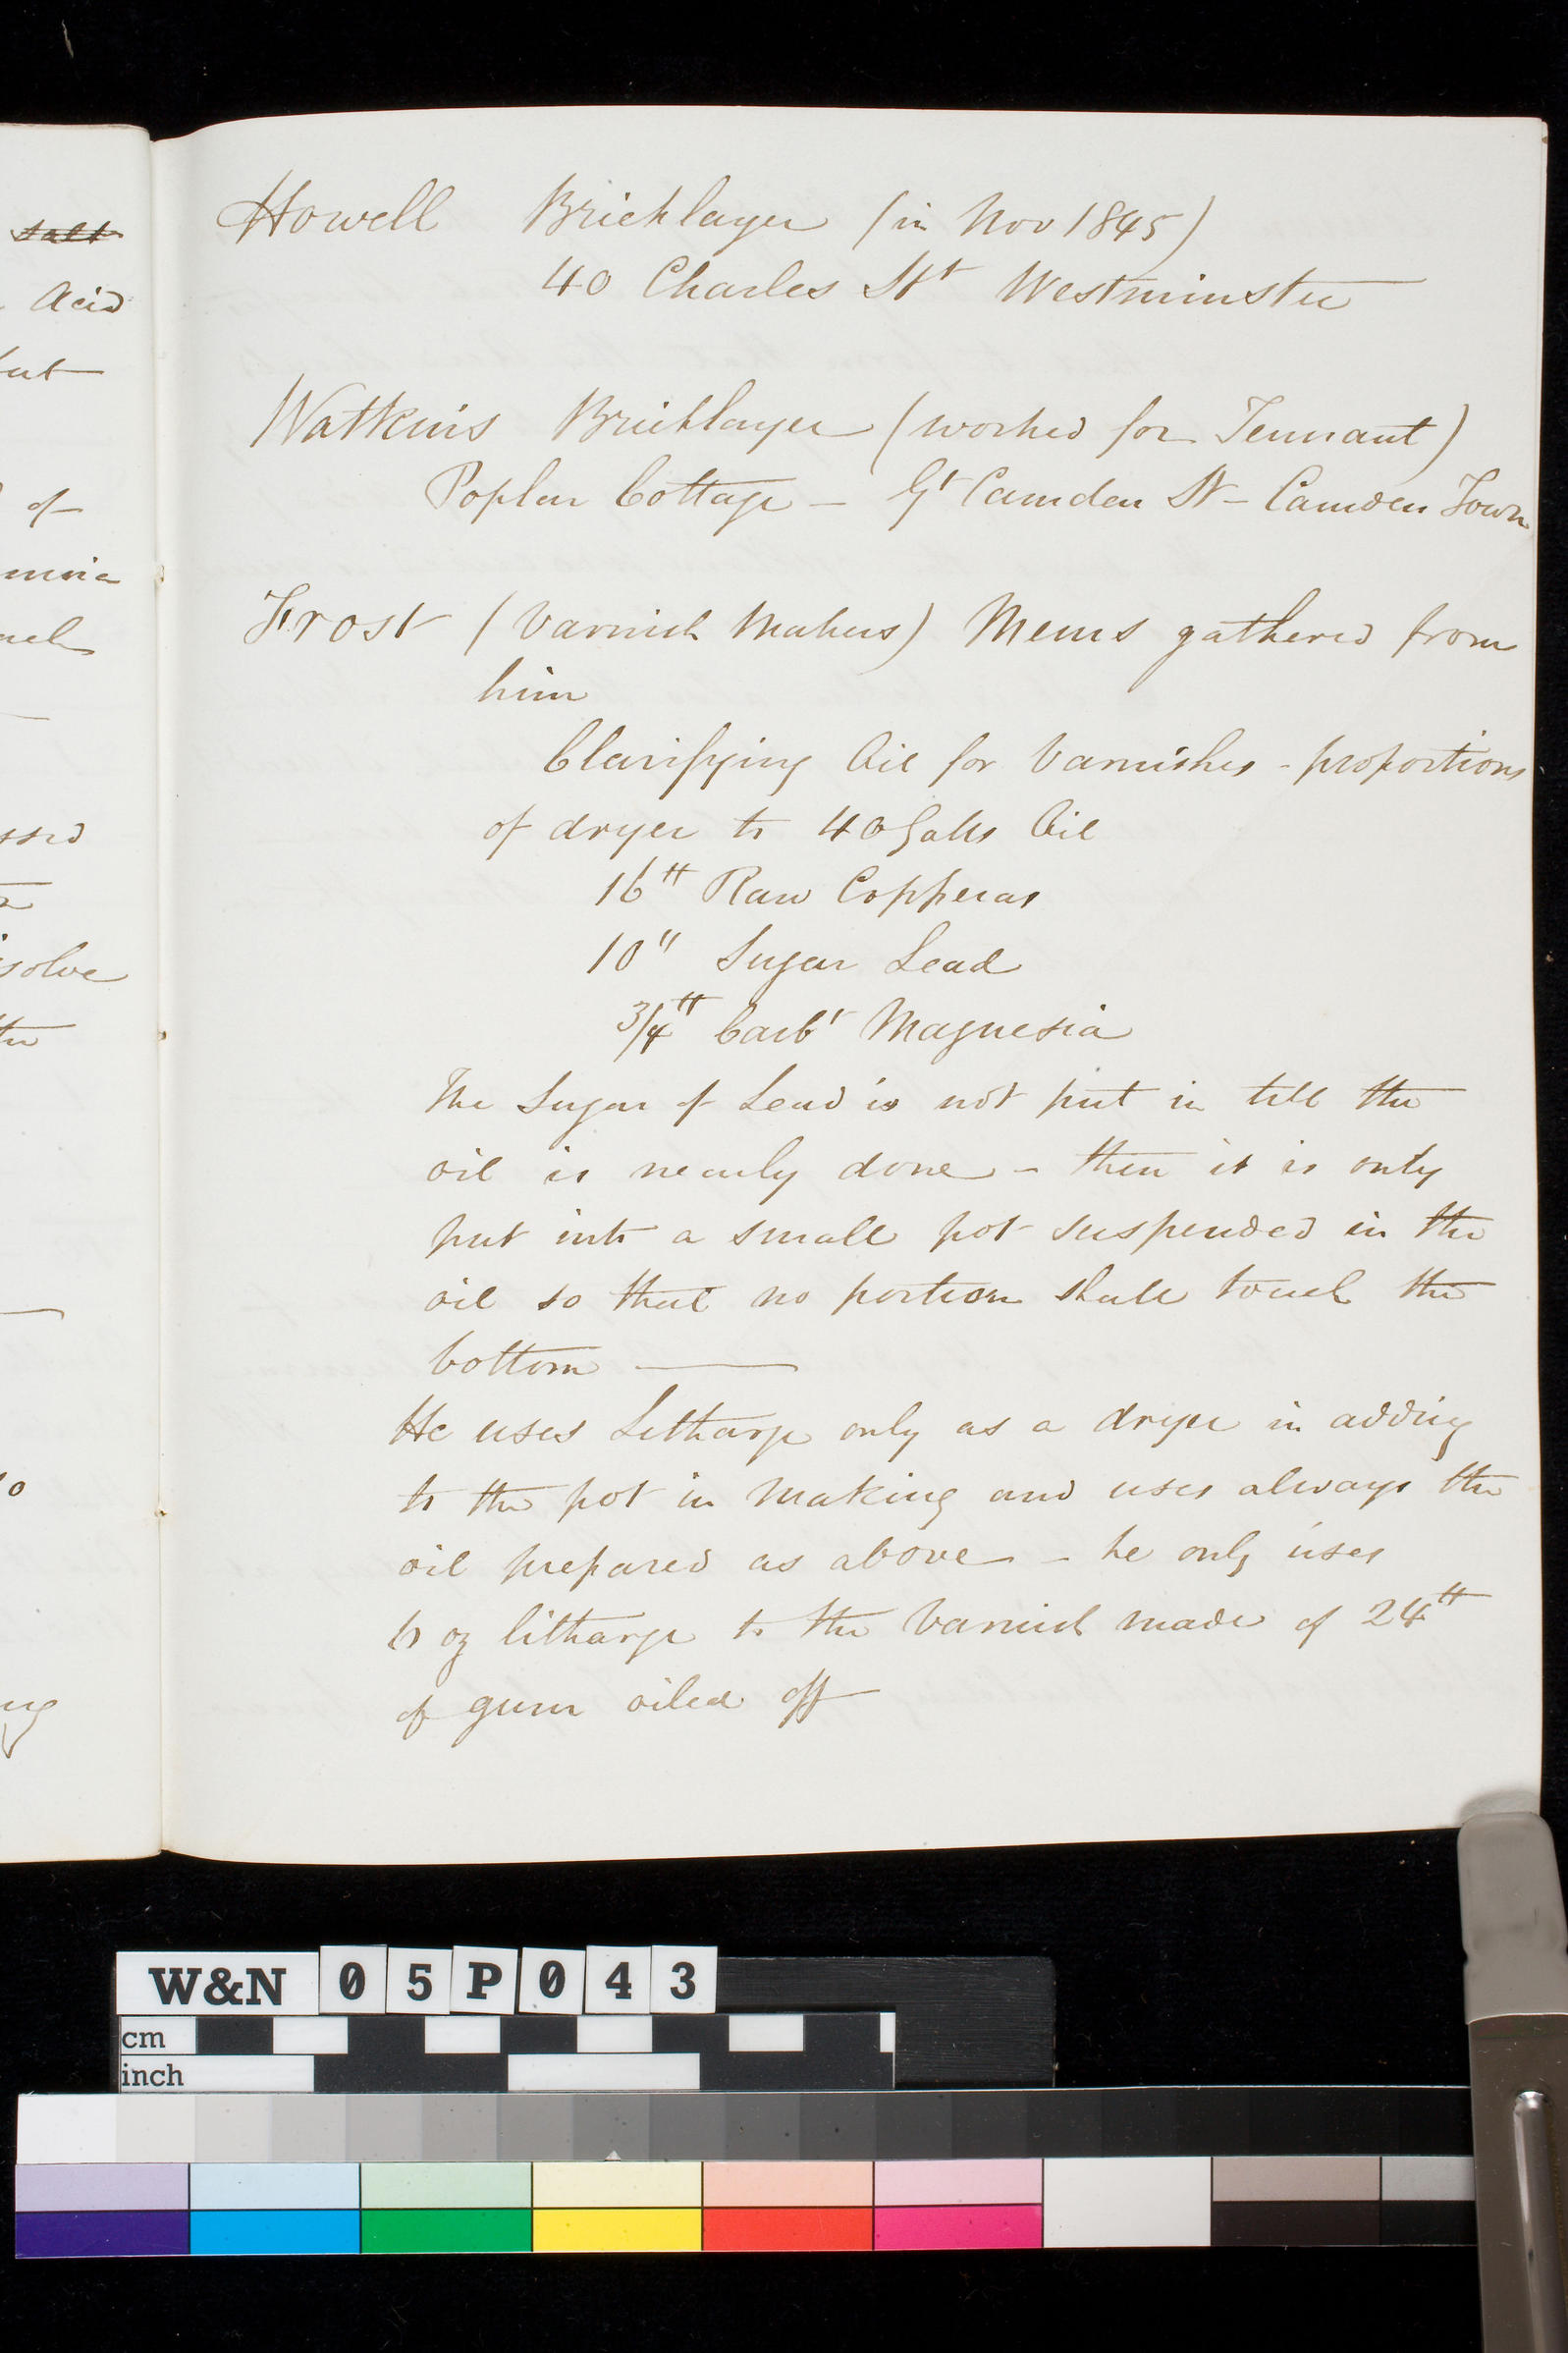 salt
Acid
of
solve
Howell Bricklayer (in Nov 1845)
40 Charles Stt Westminster
Watkins Bricklayer (worked for Tennant)
Poplar Cottage – Gt Camden St – Camden Town
Frost (Varnish Makers) Mems gathered from
him
Clarifying Oil for Varnishes - proportions
of dryer to 40 Galls Oil
16 tt Raw Copperas
10 " Sugar Lead
3/4 tt Carbt Magnesia
The Sugar of Lead is not put in till the
oil is nearly done – then it is only
put into a small pot suspended in the
oil so that no portion shall touch the
bottom ——
He uses Litharge only as a dryer in adding
to the pot in making and uses always the
oil prepared as above – he only uses
oz litharge to the Varnish made of 24 tt
of gum oiled off
W&N 05P043
cm
inch